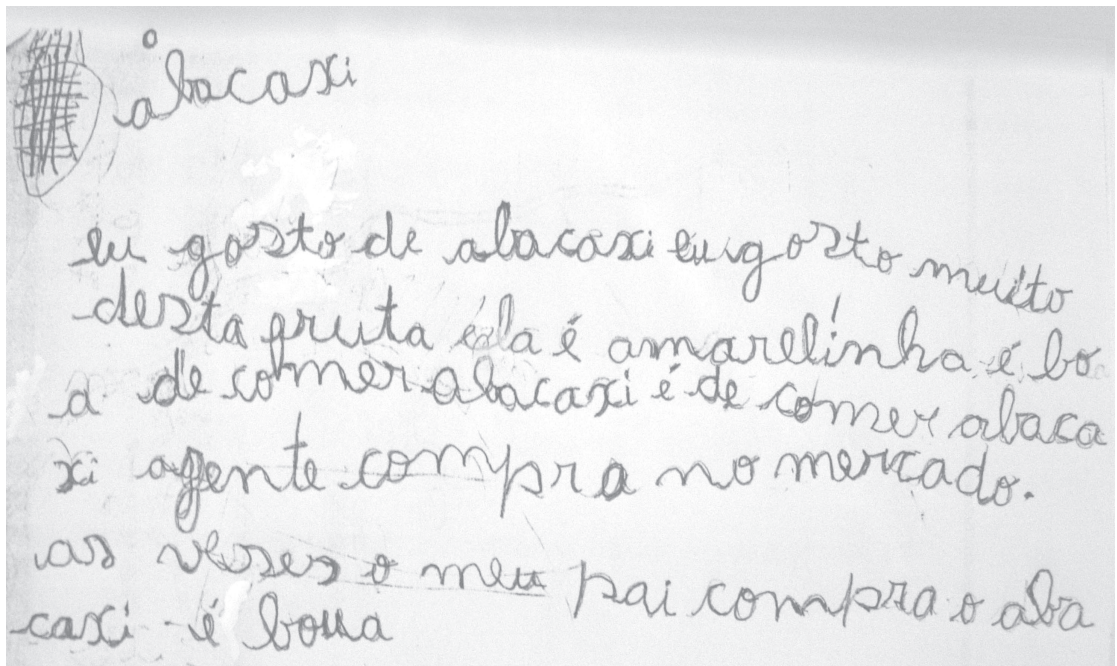 o abacaxi
eu gosto de abacaxi eu gosto muito
desta fruta ela é amarelinha é bo
a de comer abacaxi é de comer abaca
xi agente compra no mercado.
as vesses o meu pai compra o aba
caxi é boua